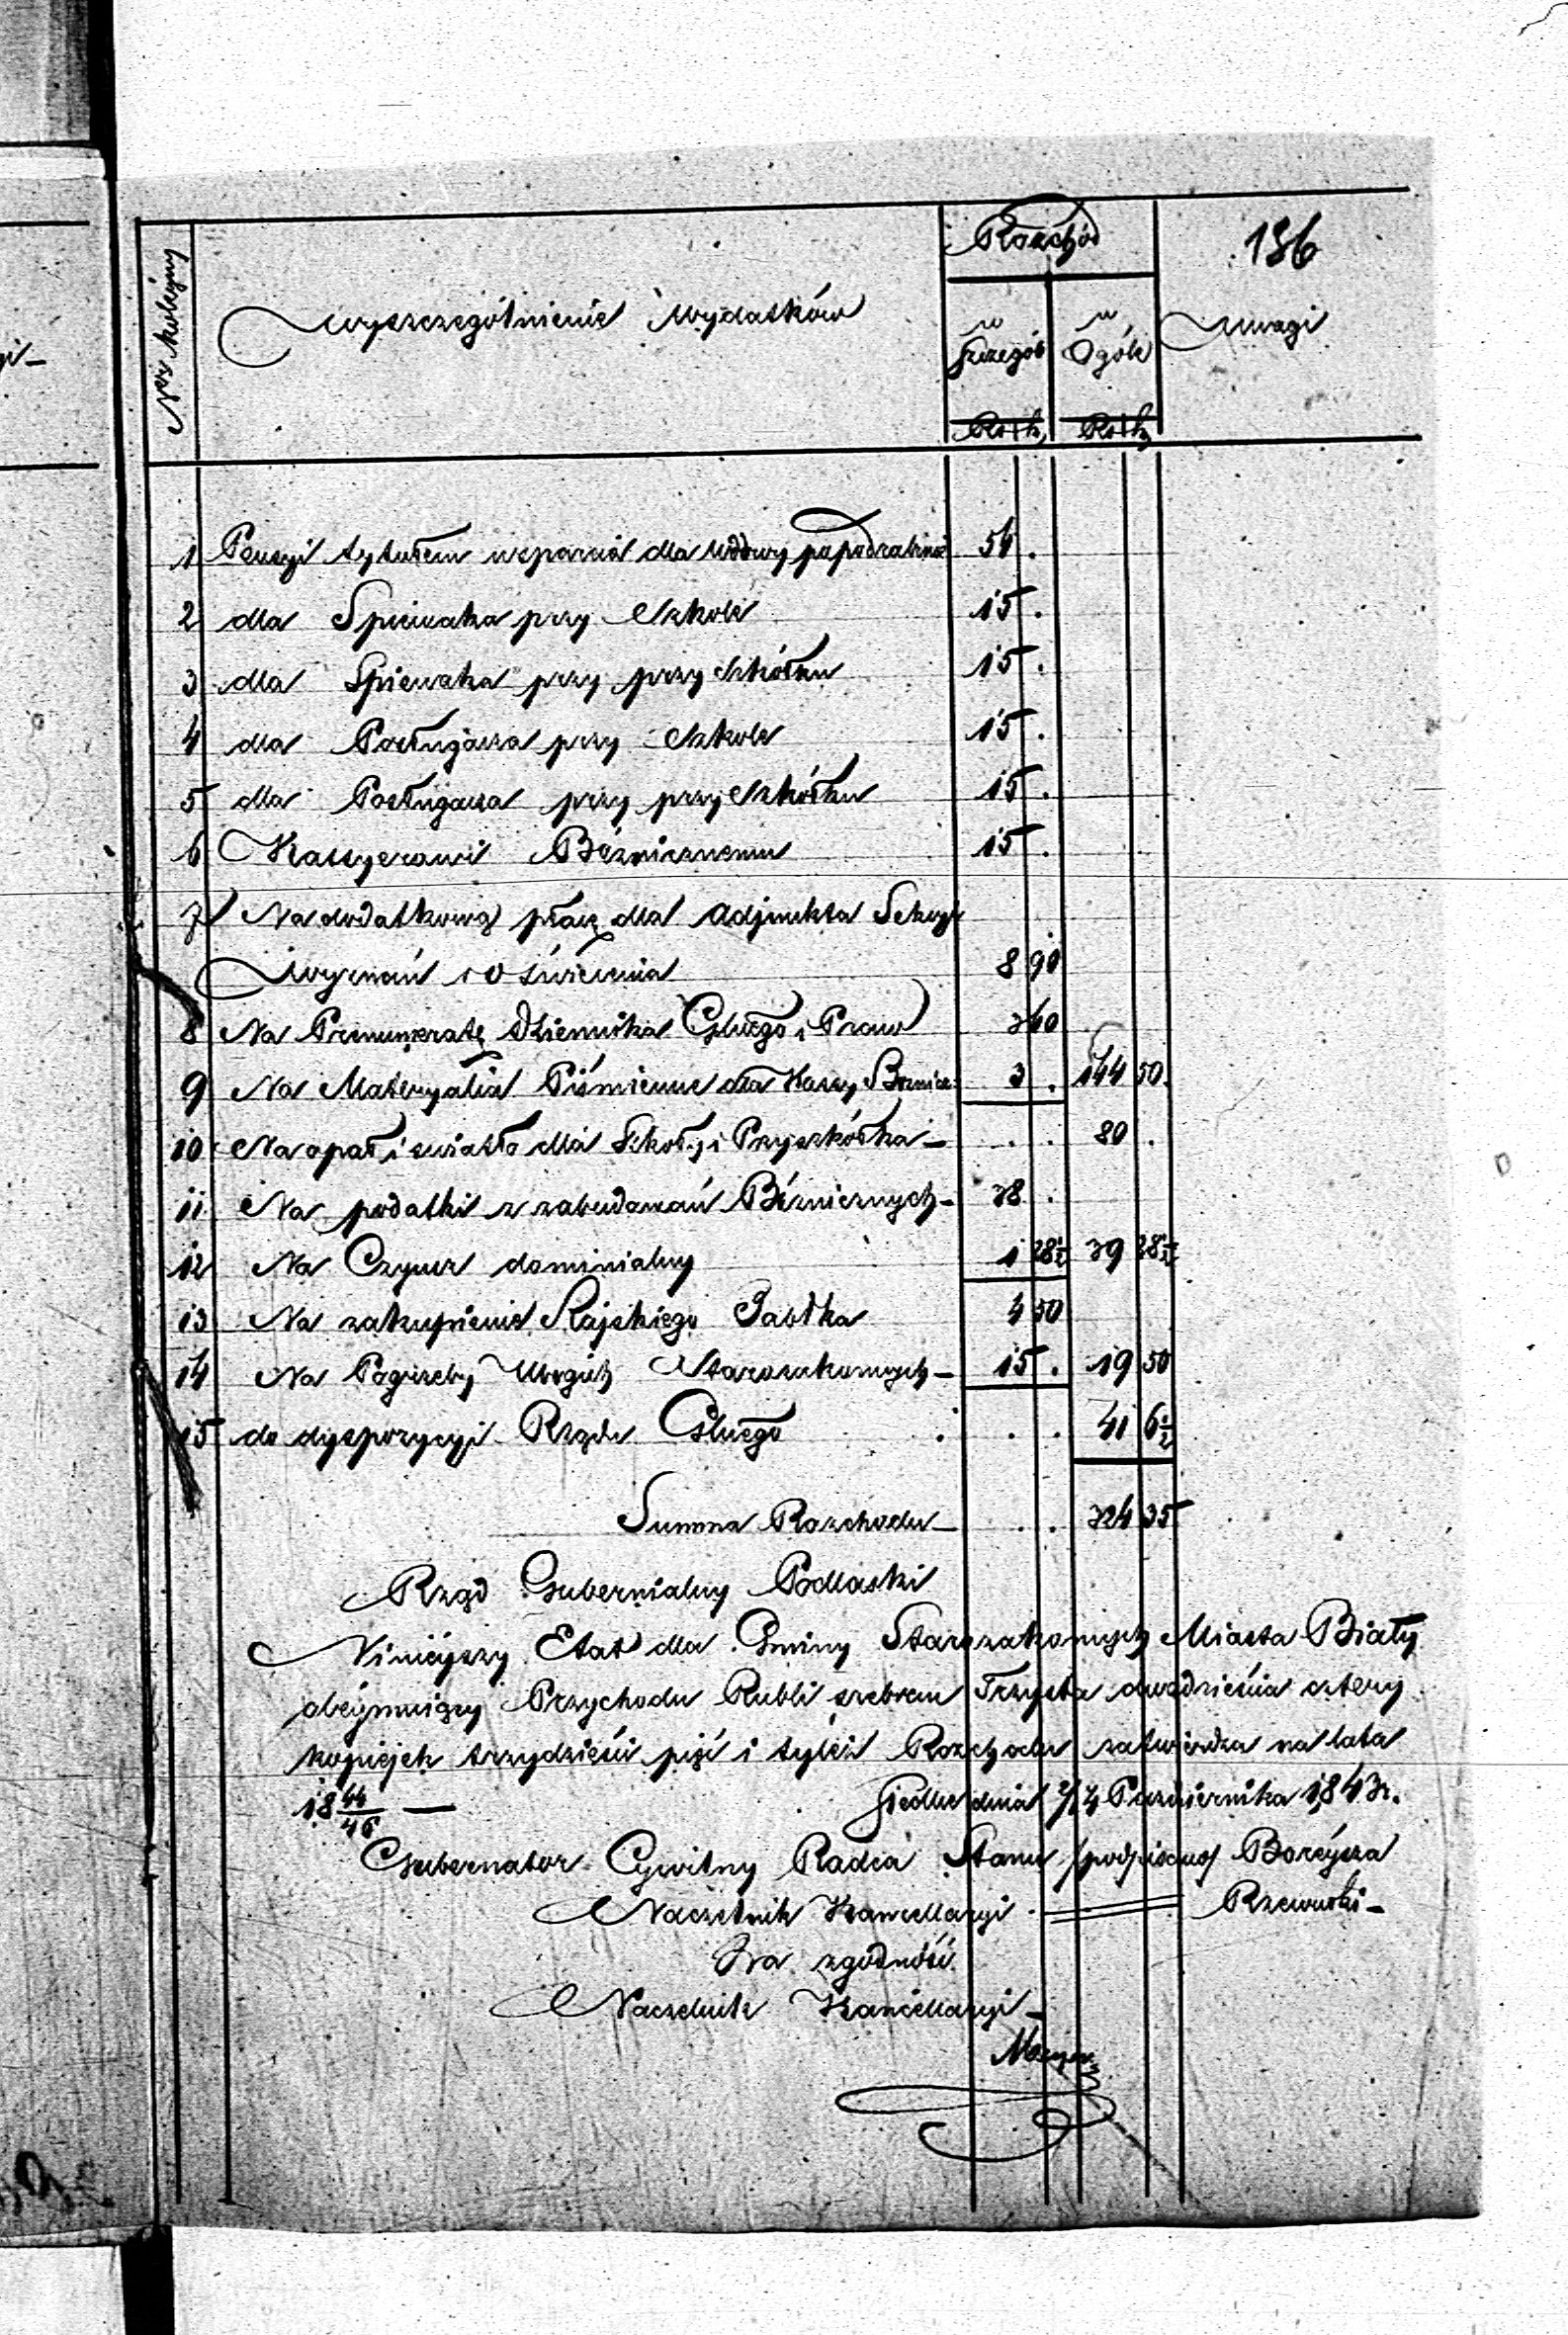 186
Nr kolejny
Wyszczególnienie Wydatków
Rozchód
w Szczególe
w Ogóle
Uwagi
Rs k. Rs k.
1 Pensyi tytułem wsparcia dla Wdowy po podrabinie 54 .
2 dla Spiewaka przy Szkole 15 .
3 dla Spiewaka przy przyszkółku 15 .
4 dla Posługacza przy Szkole 15 .
5 dla Posługacza przy przyszkółku 15 .
6 Kassyerowi Bóżnicznemu 15 .
7 Na dodatkową płacę dla Adjunkta Sekcyi
Wyznań i Oświecenia 8 90
8 Na Prenumeratę Dziennika Głnego i Praw 3 60
9 Na Materyalia Piśmienne dla Kassy Boznicz: 3 . 144 50.
10 Na opał i swiatło dla Szkoły i Przyszkółka — . . 80 .
11 Na podatki z zabudowań Bóżnicznych — 38 .
12 Na Czynsz dominialny 1 28½ 39 28½
13 Na zakupienie Rajskiego Jabłka 4 50
14 Na Pogrzeby Ubogich Starozakonnych — 15 . 19 50
15 do dyspozycyi Rządu Głnego . . . 41 6½
Summa Rozchodu — . . 324 35
Rząd Gubernialny Podlaski
Niniéyszy Etat dla Gminy Starozakonnych Miasta Biały
obéymuiący Przychodu Rubli srebrem Trzysta dwadzieścia cztery
kopiejek trzydzieści pięć i tyleż Rozchodu zatwierdza na lata
18 44/46 — Siedlce dnia 2/14 Października 1843 r.
Gubernator Cywilny Radca Stanu /podpisano/ Boréysza
Naczelnik Kancellaryi = Rzewuski —
Za zgodność
Naczelnik Kancellaryi —